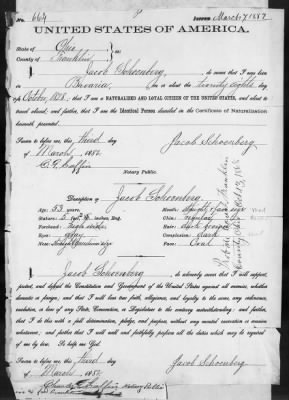 No. 664 Issued March 7 1882
UNITED STATES OF AMERICA.
State of Ohio
County of Franklin } ss:
I, Jacob Schoenberg, do swear that I was born
in Bavaria, on or about the twenty eighth day
of October 1828, that I am a NATURALIZED AND LOYAL CITIZEN OF THE UNITED STATES, and about to
travel abroad; and further, that I am the Identical Person described in the Certificate of Naturalization
herewith presented.
Sworn to before me, this third day
of March, 1882 Jacob Schoenberg
Notary Public.
Description of Jacob Schoenberg
Age: 53 years. Mouth:
Stature: 5 feet Eng. Chin: regular
Forehead: high Hair: dark
Eyes: grey Complexion: dark
Nose: Face: Oval
I, Jacob Schoenberg, do solemnly swear that I will support,
protect, and defend the Constitution and Government of the United States against all enemies, whether
domestic or foreign; and that I will bear true faith, allegiance, and loyalty to the same, any ordinance,
resolution, or law of any State, Convention, or Legislature to the contrary notwithstanding; and further,
that I do this with a full determination, pledge, and purpose, without any mental reservation or evasion
whatsoever; and further, that I will well and faithfully perform all the duties which may be required
of me by law. So help me God.
Sworn to before me, this third day
of March 1882 Jacob Schoenberg
Notary Public